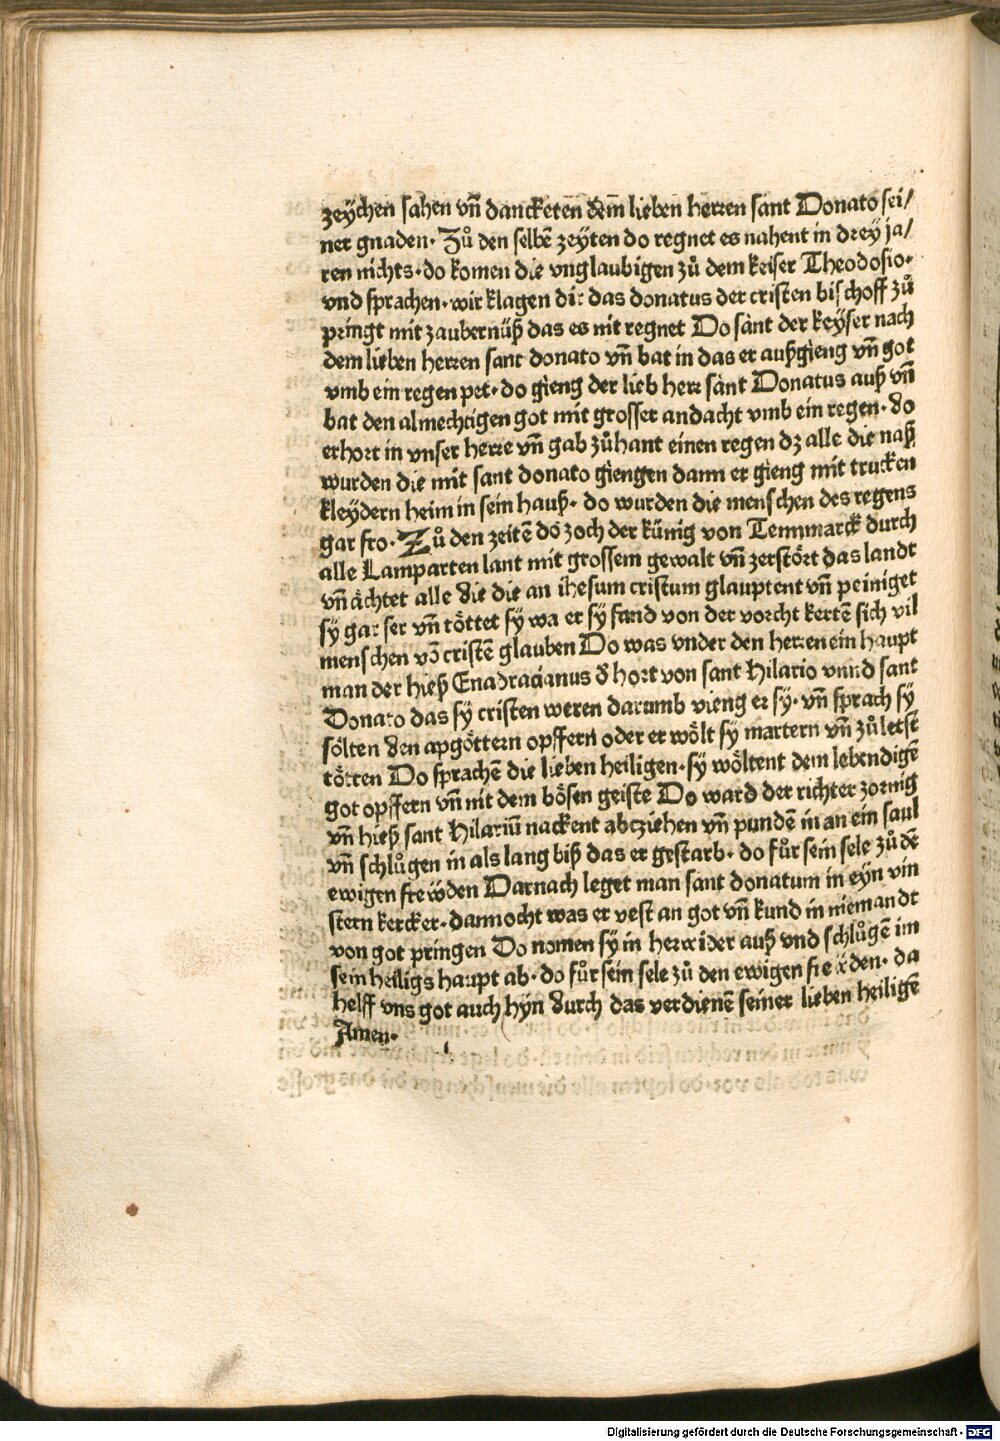 zeÿchen sahen vñ dancketen dem lieben herren sant Donato sei/
ner gnaden· Zů den selbẽ zeyten do regnet es nahent in drey ja/
ren nichts· do komen die vnglaubigen zů dem keiser Theodosio·
vnd sprachen· wir klagen dir das donatus der cristen bischoff zů
pringt mit zaubernüß das es nit regnet Do sant der keÿser nach
dem lieben herren sant donato vñ bat in das er außgieng vñ got
vmb ein regen pet· do gieng der lieb herr sant Donatus auß vñ
bat den almechtigen got mit grosser andacht vmb ein regen· do
erhort in vnser herre vñ gab zůhant einen regen dz alle die naß
wurden die mit sant donato giengen dann er gieng mit trucken
kleÿdern heim in sein hauß· do wurden die menschen des regens
gar fro· Zů den zeitẽ do zoch der künig von Tennmarck durch
alle Lamparten lant mit grossem gewalt vñ zerstört das landt
vñ ächtet alle die die an ihesum cristum glauptent vñ peiniget
sÿ gar ser vñ töttet sÿ wa er sÿ fand von der vorcht kertẽ sich vil
menschen võ cristẽ glauben Do was vnder den herren ein haupt
man der hieß Enadracianus d̕ hort von sant Hilario vnnd sant
Donato das sÿ cristen weren darumb vieng er sÿ· vñ sprach sÿ
sölten den apgöttern opffern oder er wölt sÿ martern vñ zů letst
tötten Do sprachẽ die lieben heiligen· sÿ wöltent dem lebendigẽ
got opffern vñ nit dem bösen geiste Do ward der richter zornig
vñ hieß sant Hilariũ nackent abziehen vñ pundẽ in an ein saul
vñ schlůgen in als lang biß das er gestarb· do fůr sein sele zů dẽ
ewigen frewden Darnach leget man sant donatum in eÿn vin
stern kercker· dannocht was er vest an got vñ kund in niemandt
von got pringen Do nomen sÿ in herwider auß vnd schlůgẽ im
sein heiligs haupt ab· do fůr sein sele zů den ewigen frewden· da
helff vns got auch hÿn durch das verdienẽ seiner lieben heiligẽ
Amen·
Digitalisierung gefördert durch die Deutsche Forschungsgemeinschaft - DFG